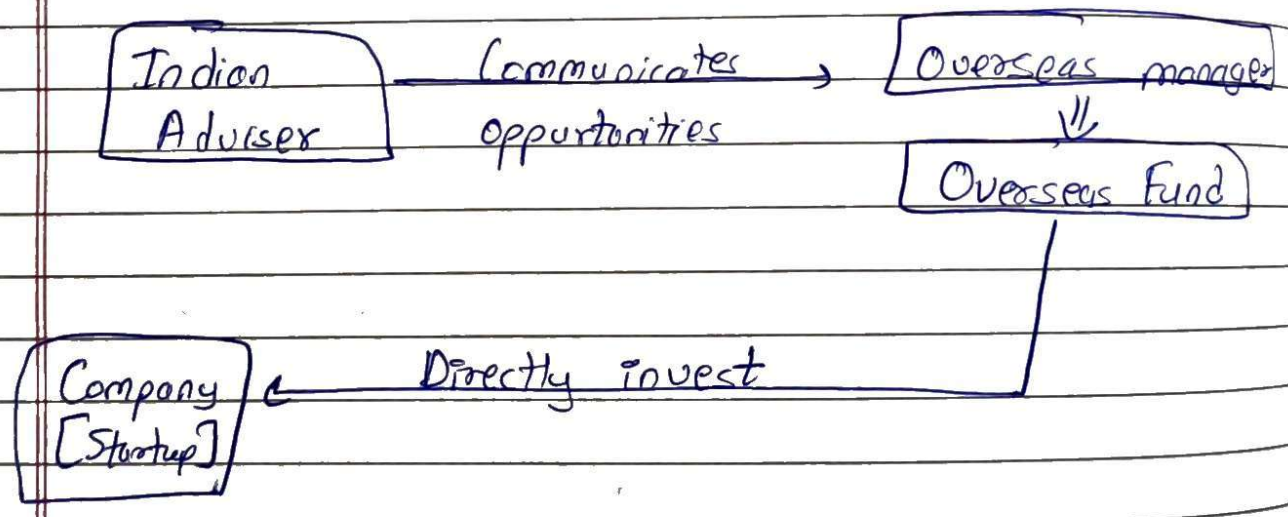 Indian
Adviser
Communicates
oppurtonities
Overseas manager
Overseas Fund
Directly invest
Company
[Startup]